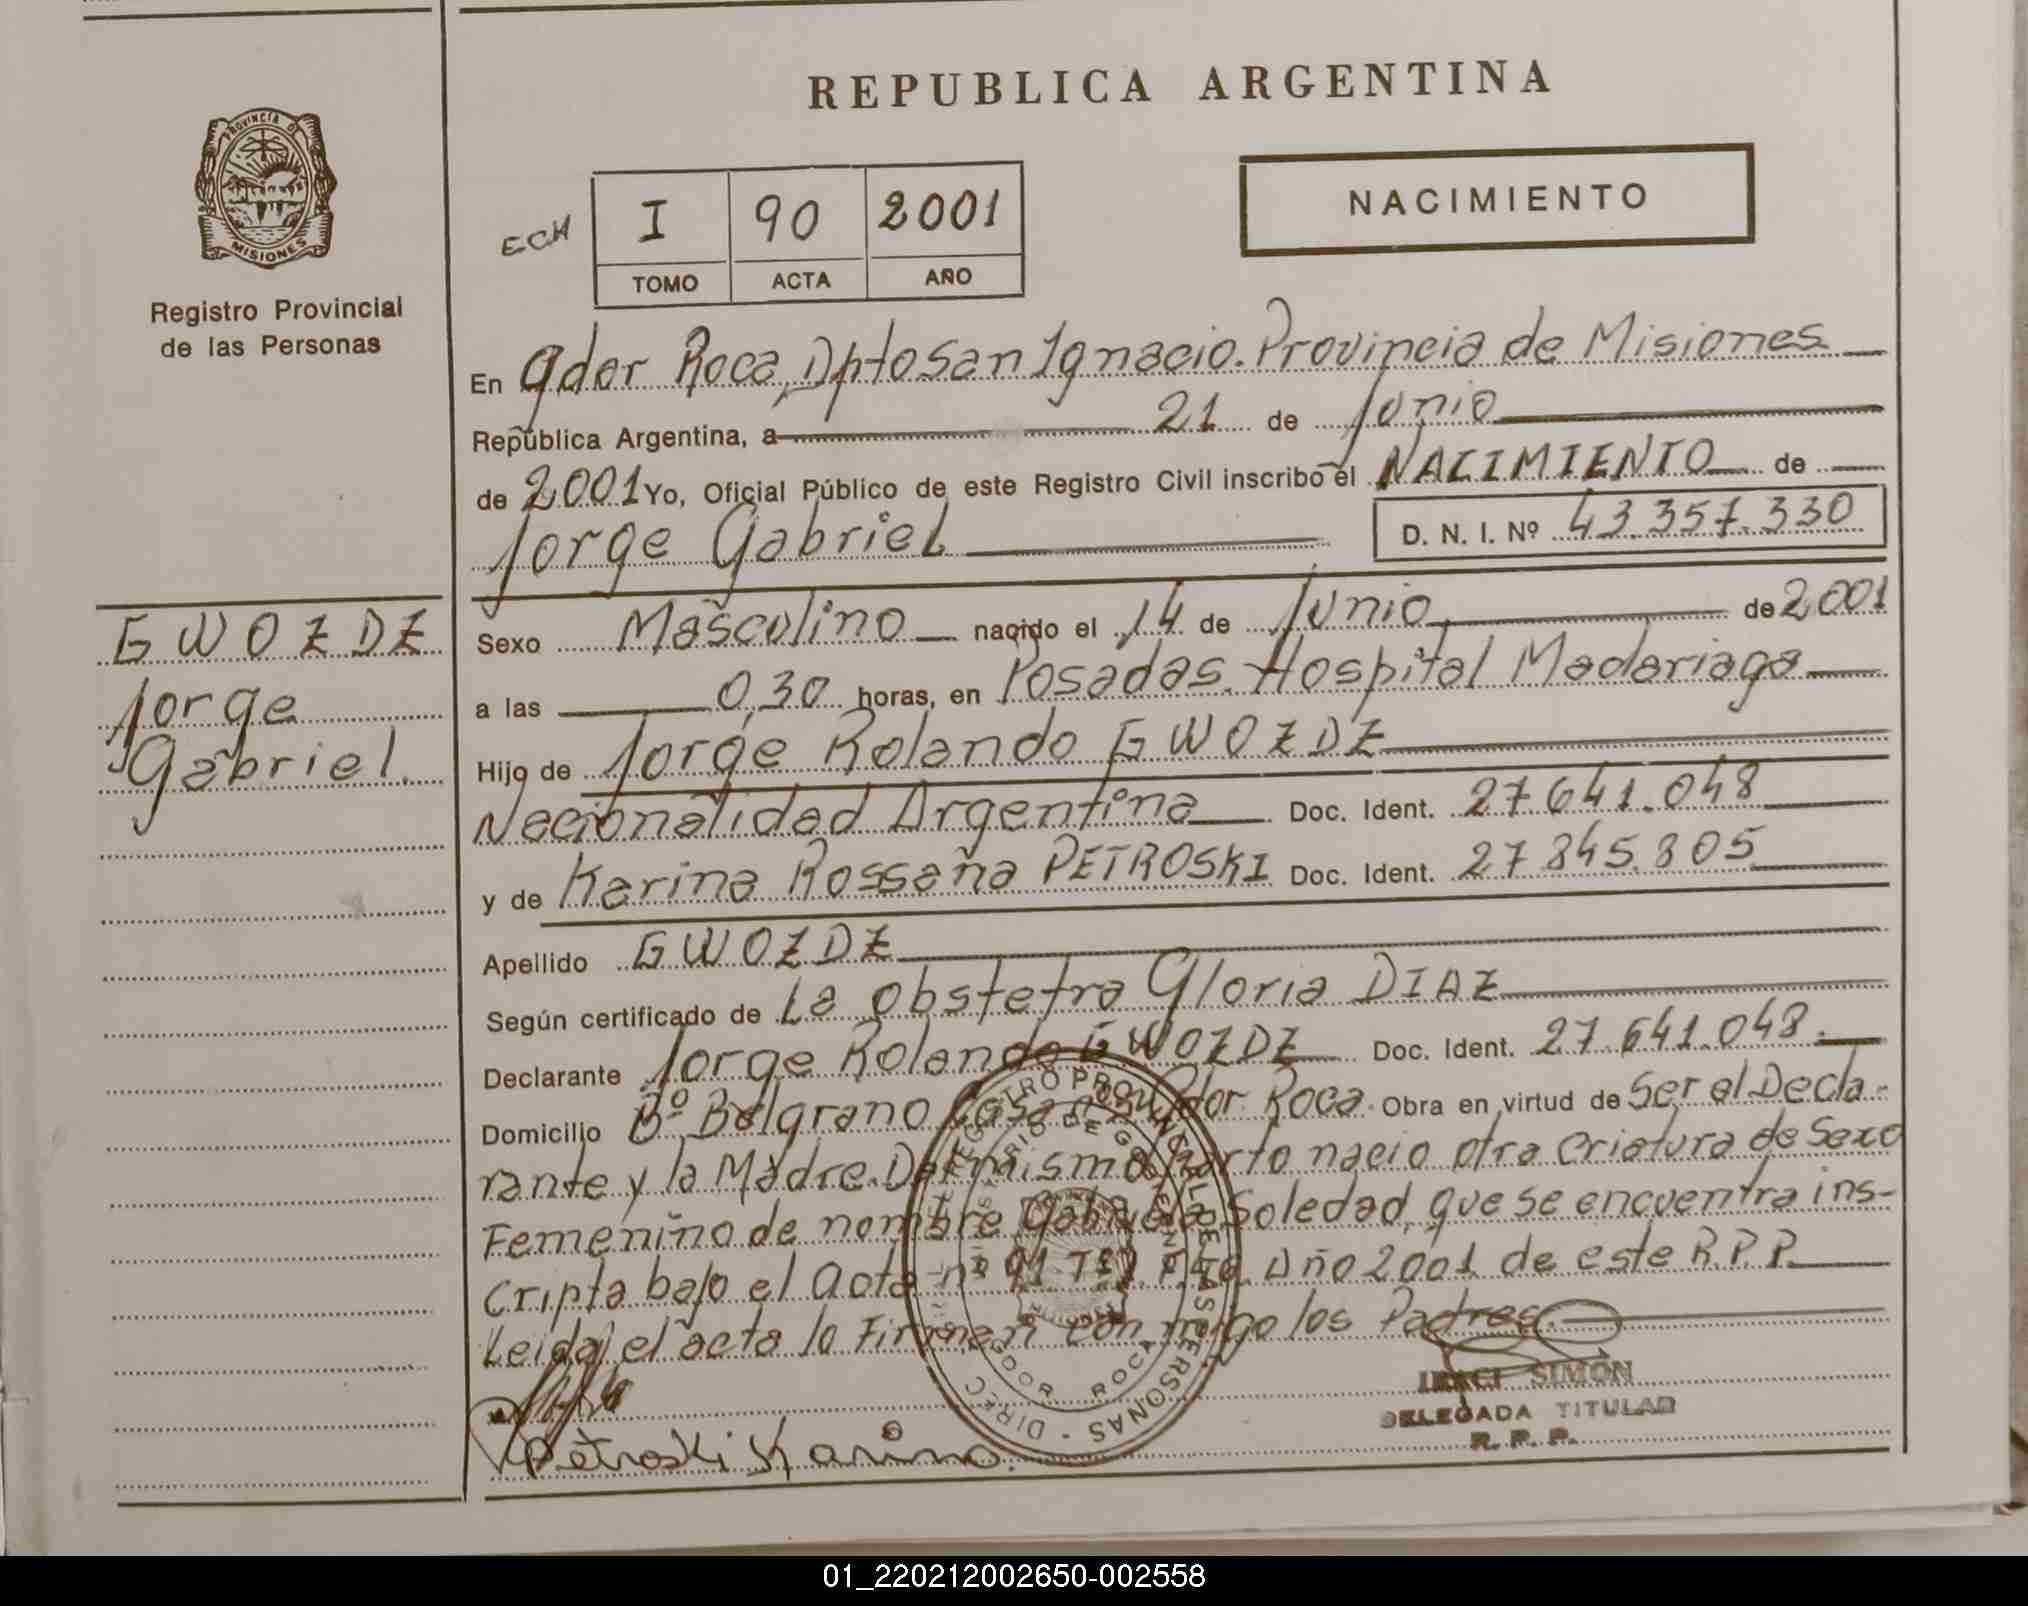 REPUBLICA ARGENTINA
PROVINCIA DE
MISIONES
Registro Provincial
de las Personas
ECH
I 90 2001
TOMO ACTA AÑO
NACIMIENTO
En Gdor Roca, Dpto San Ignacio. Provincia de Misiones
República Argentina, a 21 de Junio
de 2001 Yo, Oficial Público de este Registro Civil inscribo el NACIMIENTO de
Jorge Gabriel D. N. I. Nº 43.357.330
GWOZDZ
Jorge
Gabriel.
Sexo Masculino nacido el 14 de Junio de 2001
a las 0,30 horas, en Posadas. Hospital Madariaga
Hijo de Jorge Rolando GWOZDZ
Nacionalidad Argentina Doc. Ident. 27.641.048
y de Karina Rossana PETROSKI Doc. Ident. 27.845.805
Apellido GWOZDZ
Según certificado de La Obstetra Gloria DIAZ
Declarante Jorge Rolando GWOZDZ Doc. Ident. 27.641.048.
Domicilio Bº Belgrano Gdor. Roca. Obra en virtud de Ser el Decla-
rante y la Madre. Del mismo Parto nacio otra criatura de Sexo
Femenino de nombre Gabriela Soledad, que se encuentra ins-
cripta bajo el Acta nº 91 Tº I Año 2001 de este R.P.P.
Leida el acta lo Firman con migo los Padres.
Petroski Karina.
REGISTRO PROVINCIAL DE LAS PERSONAS - DIREC
GDOR ROCA
SIMON
DELEGADA TITULAR
R. P. P.
01_220212002650-002558